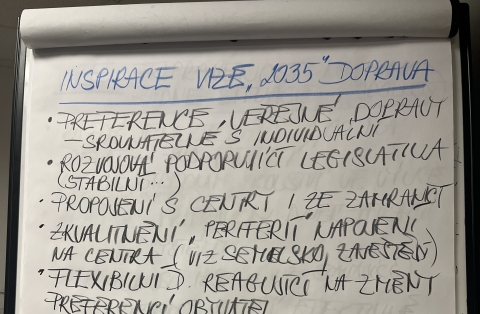 INSPIRACE VIZE „2035" DOPRAVA
• PREFERENCE VEŘEJNÉ DOPRAVY
– SROVNATELNÉ S INDIVIDUÁLNÍ
• ROZVOJOVÁ PODPORUJÍCÍ LEGISLATIVA
(STABILNÍ ...)
• PROPOJENÍ S CENTRY I ZE ZAHRANIČÍ
• ZKVALITNĚNÍ PERIFERIÍ NAPOJENÍ
NA CENTRA (VIZ SEMILSKO,
• FLEXIBILNÍ D. REAGUJÍCÍ NA ZMĚNY
PREFERENCÍ OBYVATEL